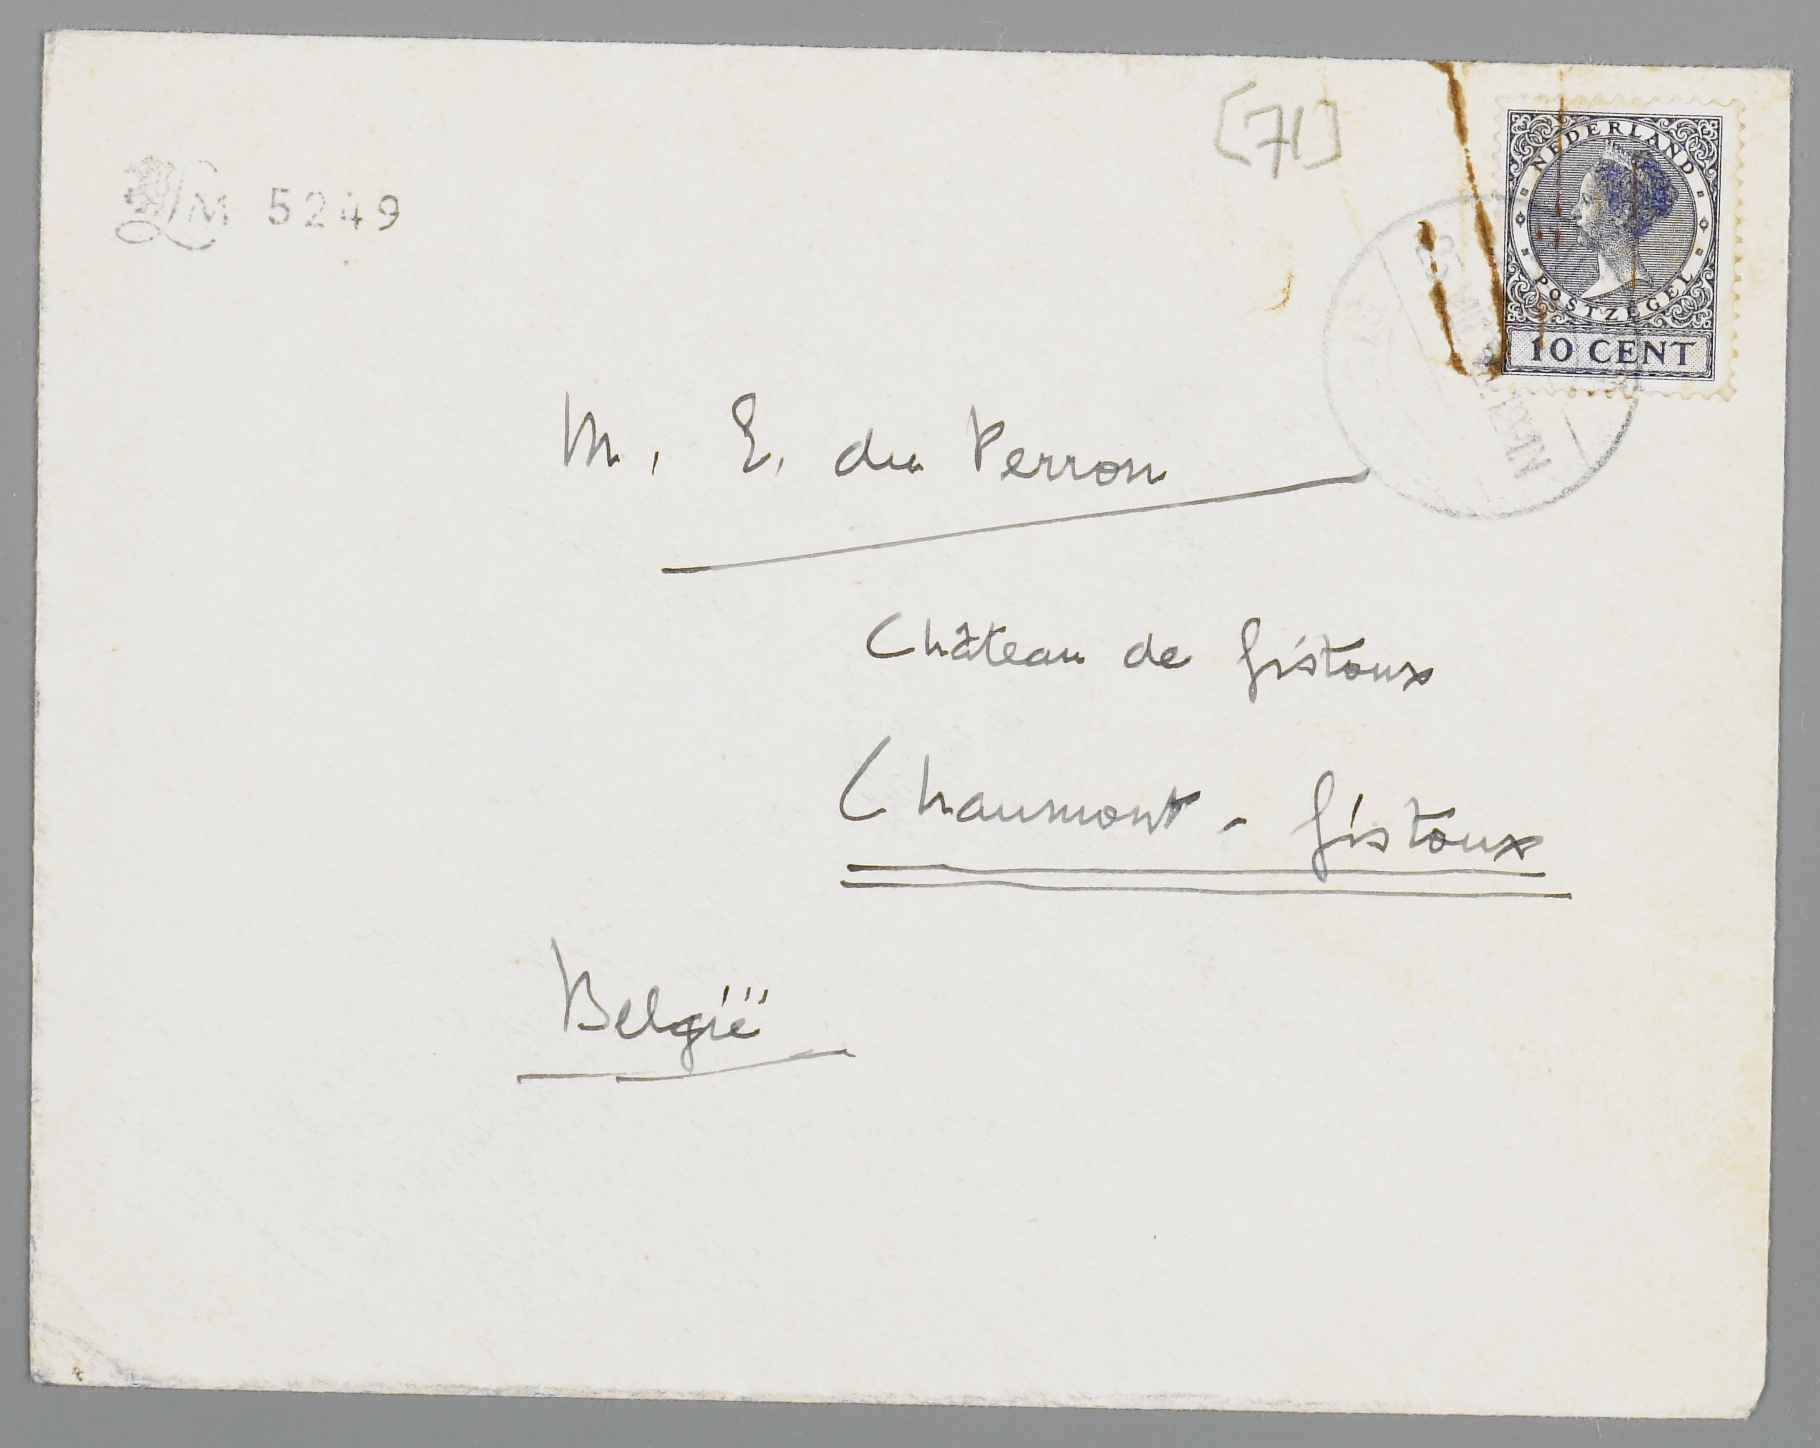 [71]
LM 5249
NEDERLAND
POSTZEGEL
10 CENT
M. E. du Perron
Château de Gistoux
Chaumont - Gistoux
België